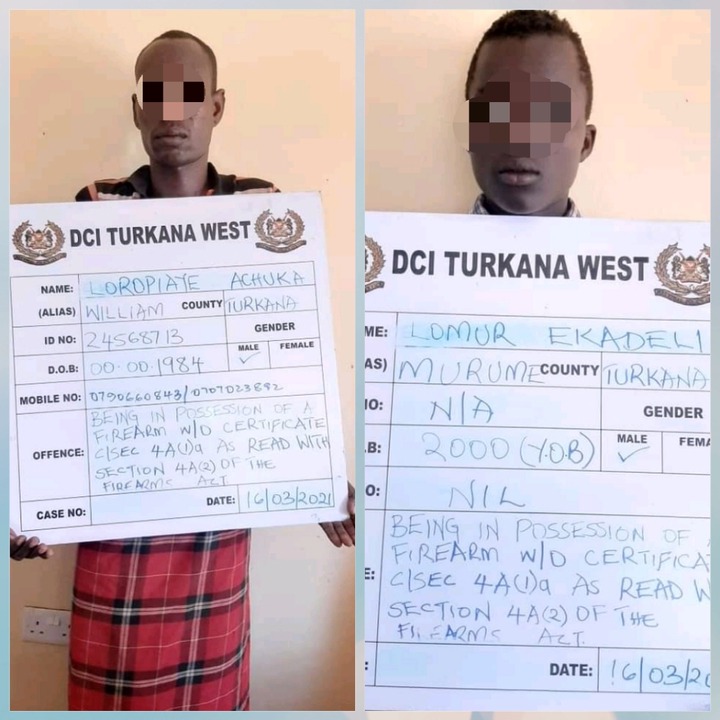 DCI TURKANA WEST
NAME: LOROPIAYE ACHUKA
(ALIAS) WILLIAM COUNTY TURKANA
ID NO: 24568713 GENDER
D.O.B: 00.00.1984 MALE ✓ FEMALE
MOBILE NO: 0790660843/0707023882
OFFENCE: BEING IN POSSESSION OF A
FIREARM W/O CERTIFICATE
C/SEC 4A(1)a AS READ WITH
SECTION 4A(2) OF THE
FIREARMS ACT.
CASE NO: DATE: 16/03/2021
DCI TURKANA WEST
ME: LOMUR EKADELI
AS) MURUME COUNTY TURKANA
IO: N/A GENDER
.B: 2000 (Y.O.B) MALE ✓ FEMA
O: NIL
E: BEING IN POSSESSION OF
FIREARM W/O CERTIFICA
C/SEC 4A(1)a AS READ W
SECTION 4A(2) OF THE
FIREARMS ACT.
: DATE: 16/03/20